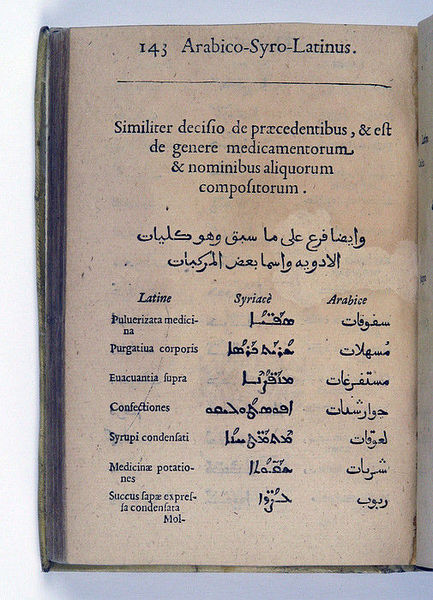 143 Arabico-Syro-Latinus.
Similiter decisio de præcedentibus, & est
de genere medicamentorum
& nominibus aliquorum
compositorum.
وايضا فرع على ما سبق وهو كليات
الادويه واسما بعض المركبات
Latine Syriacè Arabice
Puluerizata medici-
na سفوفات
Purgatiua corporis مسهلات
Euacuantia supra مستفرغات
Confectiones جوارشنات
Syrupi condensati لعوقات
Medicinæ potatio-
nes شربات
Succus sapæ expres-
sa condensata ربوب
Mol-